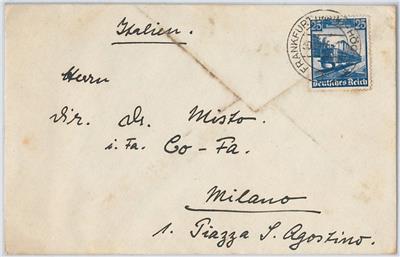 Italien.
FRANKFURT HÖC
25 25
Deutsches Reich
Herrn
Dir. Dr. Misto.
i. Fa. Co-Fa.
Milano
1. Piazza S. Agostino.